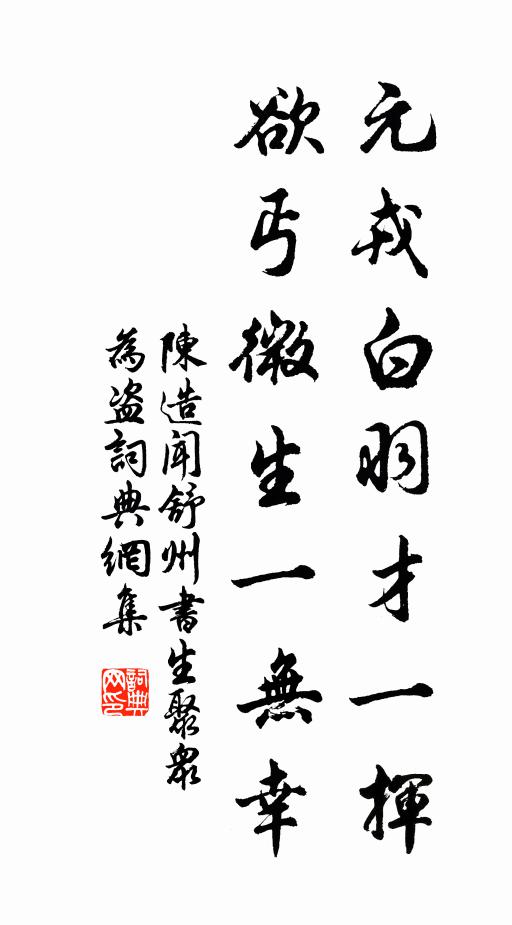 元戎白羽才一揮
欲丐微生一無幸
陳造聞舒州書生聚衆
為盗詞典網集
詞典网印